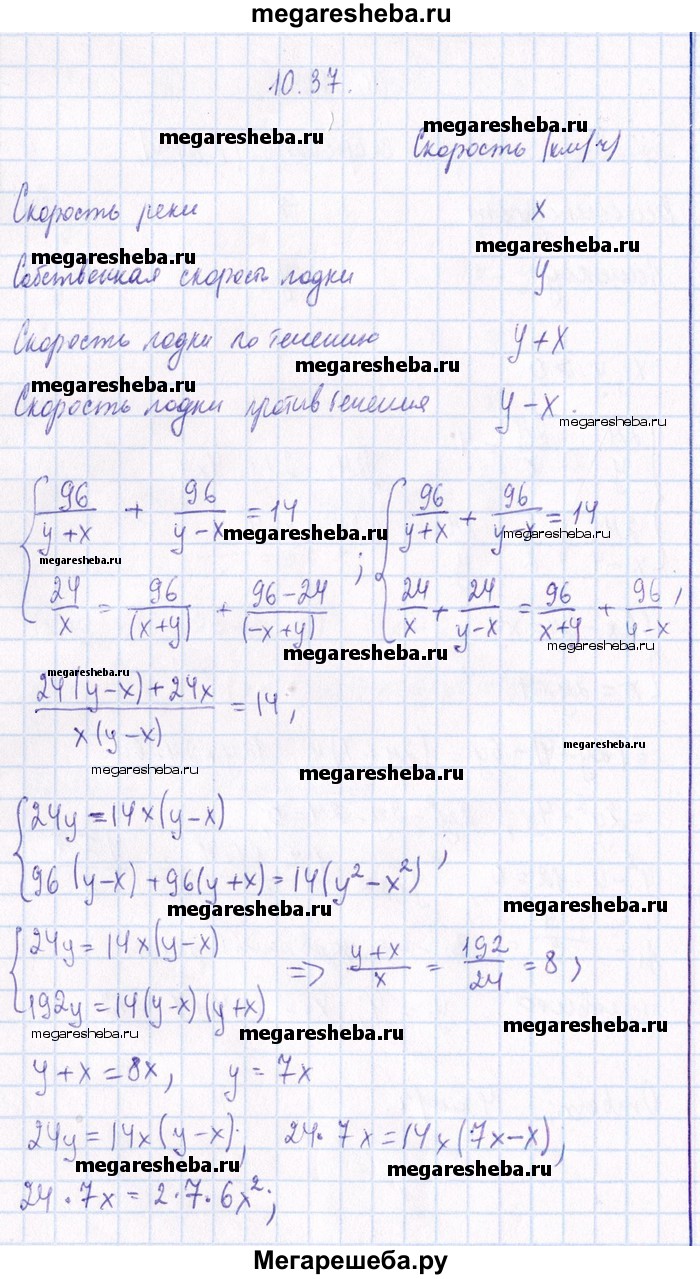 megaresheba.ru
10.37.
megaresheba.ru megaresheba.ru
Скорость (км/ч)
Скорость реки x
megaresheba.ru megaresheba.ru
Собственная скорость лодки y
Скорость лодки по течению y+x
megaresheba.ru
megaresheba.ru
Скорость лодки против течения y-x.
megaresheba.ru
{ 96/(y+x) + 96/(y-x) = 14 { 96/(y+x) + 96/(y-x) = 14
megaresheba.ru megaresheba.ru megaresheba.ru
24/x = 96/(x+y) + (96-24)/(-x+y) ; 24/x + 24/(y-x) = 96/(x+y) + 96/(y-x) ,
megaresheba.ru megaresheba.ru
megaresheba.ru
(24(y-x)+24x)/(x(y-x)) = 14,
megaresheba.ru megaresheba.ru megaresheba.ru
{ 24y = 14x(y-x)
96(y-x)+96(y+x)=14(y²-x²) ;
megaresheba.ru megaresheba.ru
{ 24y = 14x(y-x) => (y+x)/x = 192/24 = 8,
192y=14(y-x)(y+x)
megaresheba.ru megaresheba.ru megaresheba.ru
y+x=8x, y=7x
24y=14x(y-x); 24·7x=14x(7x-x);
megaresheba.ru megaresheba.ru
24·7x=2·7·6x²;
Мегарешеба.ру